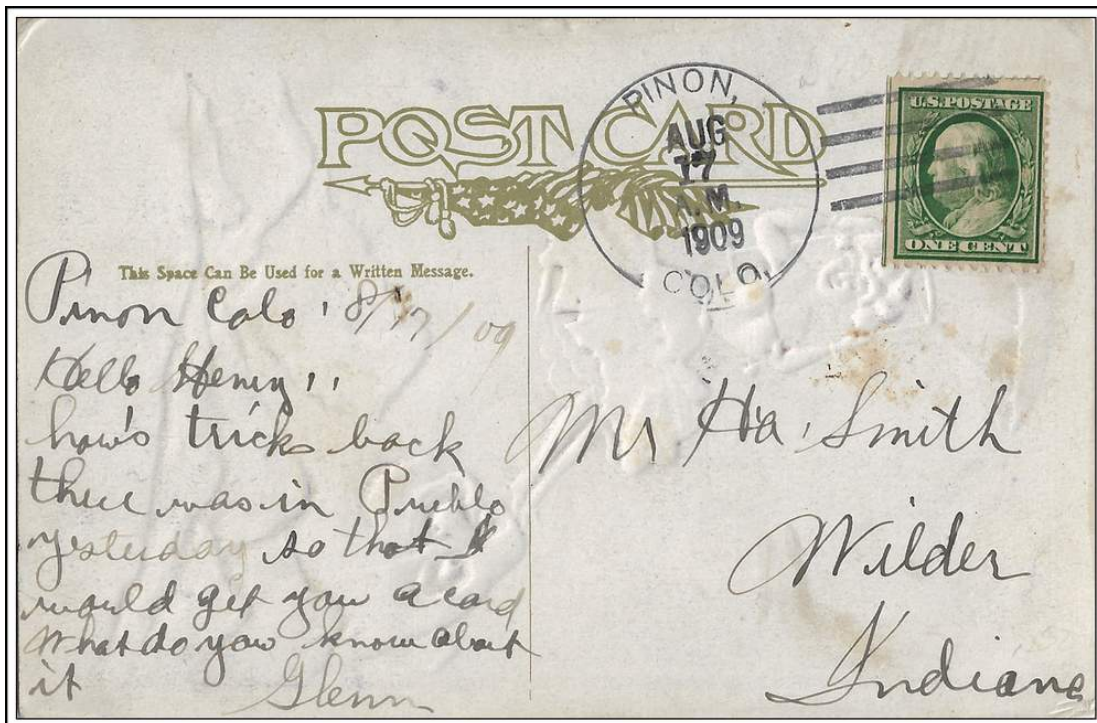 POST CARD
PINON,
AUG
17
A.M.
1909
COLO.
U.S. POSTAGE
ONE CENT
This Space Can Be Used for a Written Message.
Pinon Colo. 8/17/09
Hello Henry,,
how's tricks back
there was in Pueblo
yesterday so that I
would get you a card
What do you know about
it
Glenn
Mr Ha. Smith
Wilder
Indiana